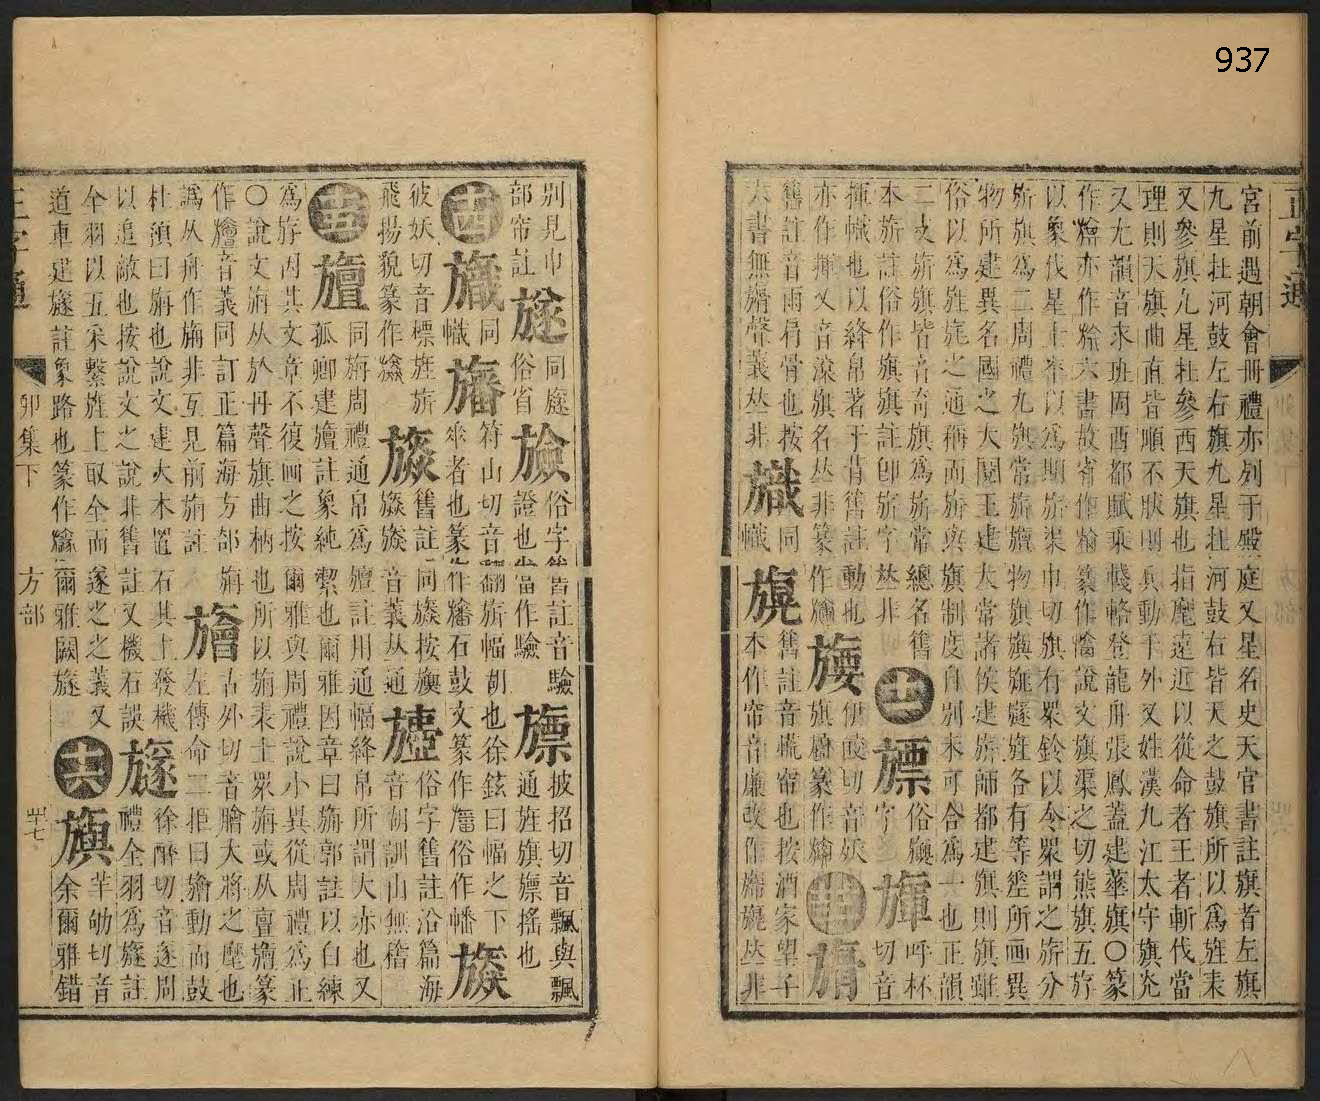 937
正字通
宮前遇朝會冊禮亦列于殿庭又星名史天官書註旗者左旗
九星在河鼓左右旗九星在河鼓右皆天之鼓旗所以為旌表
又參旗九星在參西天旗也指麾遠近以從命者王者斬伐當
理則天旗曲直皆順不肰則兵動于外又姓漢九江太守旗况
又尤韻音求班固西都賦乘輚輅登龍舟張鳳蓋建華旗○篆
作亦作六書故省作篆作說文旗渠之切熊旗五斿
以象伐星士卒以為期旂渠巾切旗有眾鈴以令眾謂之旂分
旂旗為二周禮九旗常旂旜物旗旟旐旞旌各有等壐所畫異
物所建異名國之大閱王建大常諸侯建旂師都建旗則旗雖
俗以為旌旄之通稱而旂與旗制度自別未可合為一也正韻
二支旂旗皆音奇旗為旂常總名舊
本旂註俗作旗旗註卽旂字𠀤非 十一 字俗旟 切音呼杯
揮幟也以絳帛著于背舊註動也
亦作揮又音滾旗名𠀤非篆作 伊𠯗切音妖旗旛篆作
舊註音雨肩骨也按舊註音㡆帘也按酒家望子
六書無聲義𠀤非 幟同 本作帘音廉改作𠀤非
別見巾
部帘註 旞 同旞俗省 俗字舊註音驗證也當作驗 旚 披招切音飄與飄通旌旗旚搖也
十四 旘 同幟 旛 符山切音翻旂幅胡也徐鉉曰幅之下垂者也篆作石鼓文篆作俗作幡
彼妖切音標旌旂
飛揚貌篆作 舊註同旟按旟音義𠀤通 俗字舊註沿篇海音胡訓山無稽
十五 旜 同旃周禮通帛為旜註用通幅絳帛所謂大赤也又
孤卿建旜註象純絜也爾雅因章曰旃郭註以白練
為旂因其文章不復畫之按爾雅與周禮說小異從周禮為正
○說文旃从㫃丹聲旗曲柄也所以旃表士眾旃或从亶旜篆
作音義同訂正篇海方部旃
譌从舟作旃非互見前旃註 旝 古外切音膾大將之麾也左傳命二拒曰旝動而鼓
杜預曰旃也說文建大木置石其上發機
以追敵也按說文之說非舊註又機石誤 旞 徐醉切音遂周禮全羽為旞註
全羽以五采繫旌上取全而遂之之義又
道車建旞註象路也篆作爾雅闕旞 十六 旟 羊劬切音余爾雅錯
正字通
卯集下
方部
四七